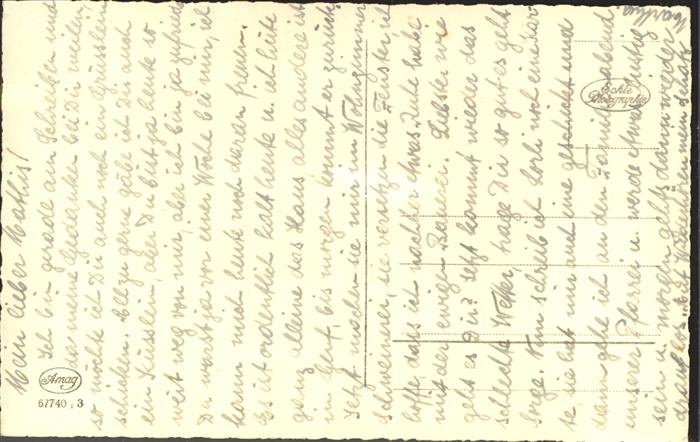 Mein lieber Mathis!
Ich bin gerade am Schreiben und
da meine Gedanken bei Dir weilen
so möchte ich Dir auch noch ein Grüsslein
schicken. Allzu gerne gäbe ich Dir auch
ein Küsslein, aber Du bist ja heute so
weit weg von mir, aber ich bin ja zufrieden
Du warst ja vor einer Woche bei mir, ich
kann mich heute noch daran freuen.
Es ist ordentlich kalt heute u. ich hüte
ganz alleine das Haus alles andere ist
in Genf, bis morgen kommt er zurück.
Jetzt machen sie mir im Wohnzimmer
Schweinerei, sie versetzen die Fenster ich
hoffe, dass ich nachher etwas Ruhe habe
mit der ewigen Bauerei. Liebster wie
geht es Dir? Jetzt kommt wieder das
schlechte Wetter, trage Dir so gut es geht
Sorge. Nun schreib ich noch eine Kar-
te sie hat mir auch eine geschickt und
dann gehe ich an den Familienabend
unserer Pfarrei u. werde etwas lustig
sein u. morgen gehts dann wieder
Amag
67740, 3
Echte
Photographie